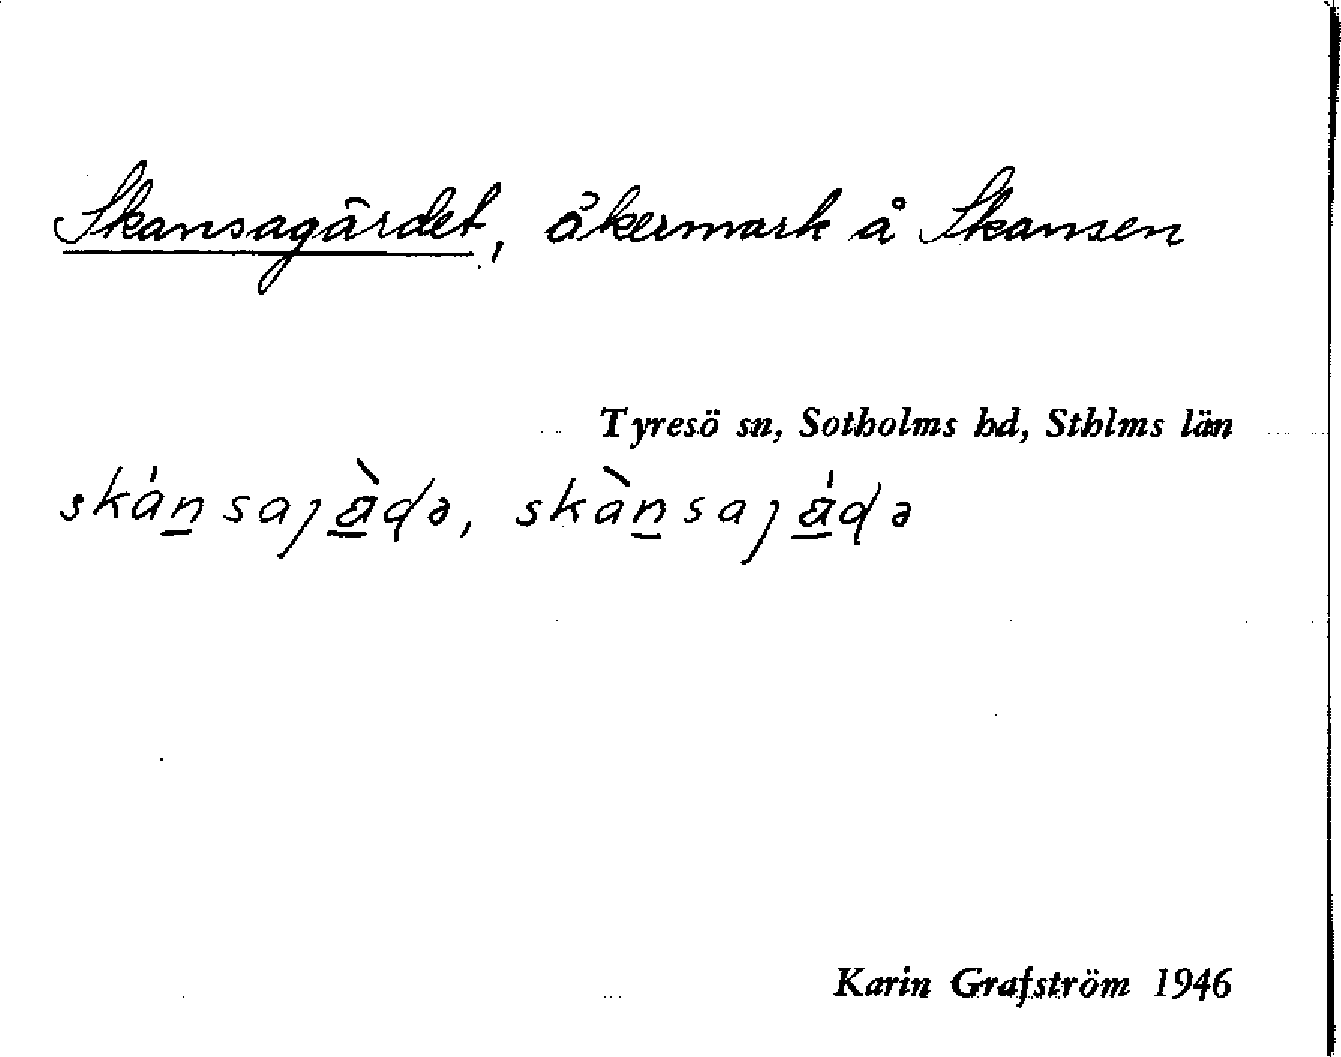 Skansagärdet, åkermark å Skansen
Tyresö sn, Sotholms hd, Sthlms län
skánsajàdə, skànsajádə
Karin Grafström 1946